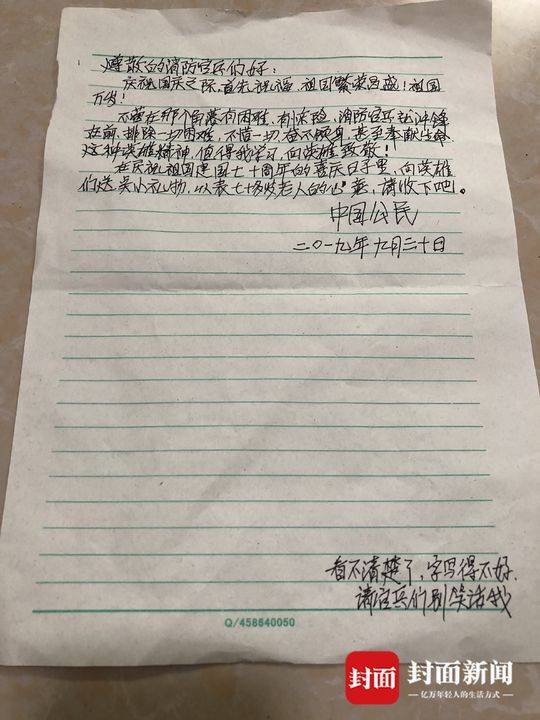 尊敬的消防官兵们好:
庆祝国庆之际,首先祝福,祖国繁荣昌盛!祖国
万岁!
不管在那个角落有困难,有火险,消防官兵都冲锋
在前,排除一切困难,不惜一切,奋不顾身,甚至奉献生命
这种英雄精神,值得我学习,向英雄致敬!
在庆祝祖国建国七十周年的喜庆日子里,向英雄
们送点小礼物,以表七十多岁老人的心意,请收下吧。
中国公民
二〇一九年九月三十日
看不清楚了,字写得不好.
请官兵们别笑话我
Q/458840050
封面 封面新闻
亿万年轻人的生活方式